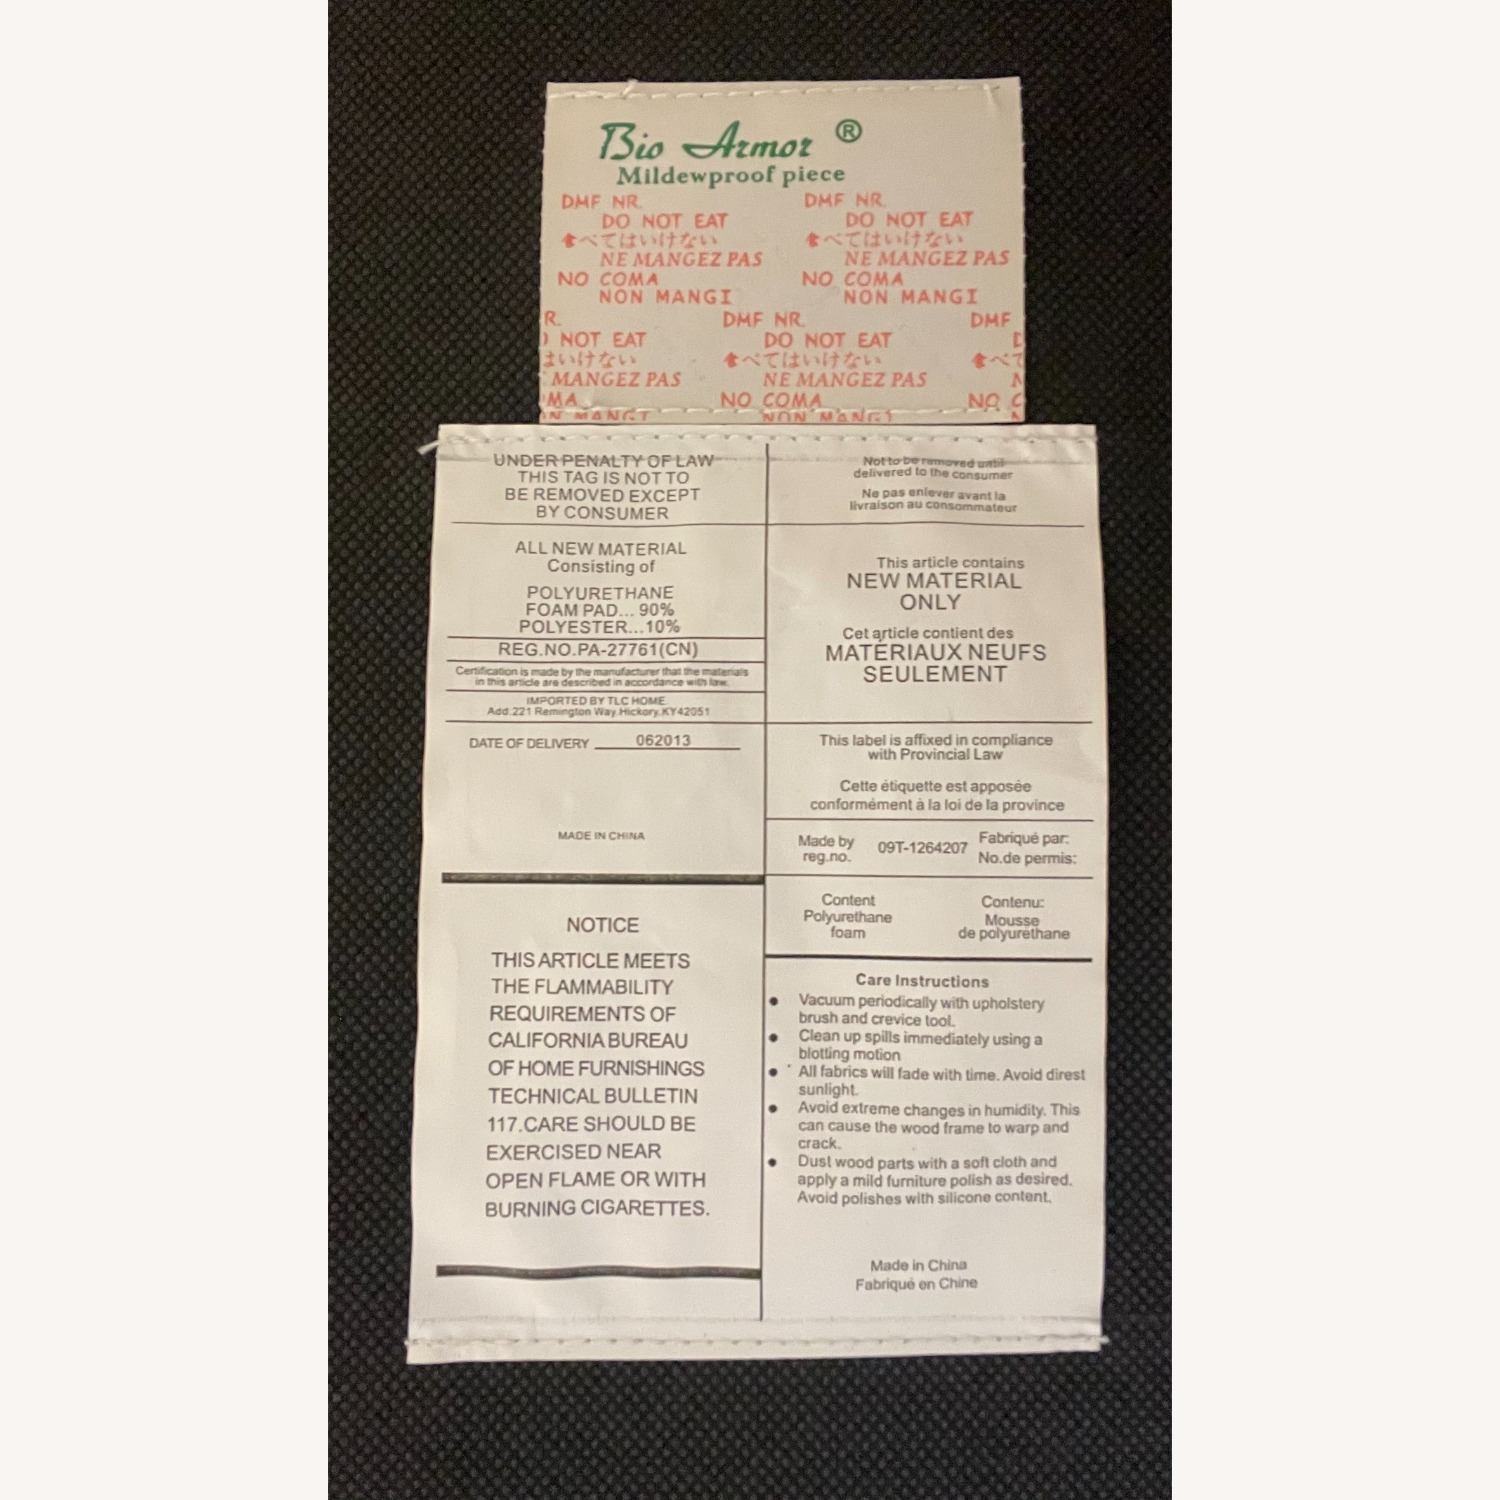 Bio Armor ®
Mildewproof piece
DMF NR. DMF NR.
DO NOT EAT DO NOT EAT
食べてはいけない 食べてはいけない
NE MANGEZ PAS NE MANGEZ PAS
NO COMA NO COMA
NON MANGI NON MANGI
R. DMF NR. DMF
NOT EAT DO NOT EAT
はいけない 食べてはいけない 食べて
MANGEZ PAS NE MANGEZ PAS N
MA NO COMA NO C
N MANGI NON MANGI N
UNDER PENALTY OF LAW
THIS TAG IS NOT TO
BE REMOVED EXCEPT
BY CONSUMER
ALL NEW MATERIAL
Consisting of
POLYURETHANE
FOAM PAD... 90%
POLYESTER...10%
REG.NO.PA-27761(CN)
Certification is made by the manufacturer that the materials
in this article are described in accordance with law.
IMPORTED BY TLC HOME
Add.221 Remington Way.Hickory.KY42051
DATE OF DELIVERY 062013
MADE IN CHINA
NOTICE
THIS ARTICLE MEETS
THE FLAMMABILITY
REQUIREMENTS OF
CALIFORNIA BUREAU
OF HOME FURNISHINGS
TECHNICAL BULLETIN
117.CARE SHOULD BE
EXERCISED NEAR
OPEN FLAME OR WITH
BURNING CIGARETTES.
Not to be removed until
delivered to the consumer
Ne pas enlever avant la
livraison au consommateur
This article contains
NEW MATERIAL
ONLY
Cet article contient des
MATÉRIAUX NEUFS
SEULEMENT
This label is affixed in compliance
with Provincial Law
Cette étiquette est apposée
conformément à la loi de la province
Made by 09T-1264207 Fabriqué par:
reg.no. No.de permis:
Content Contenu:
Polyurethane Mousse
foam de polyuréthane
Care Instructions
● Vacuum periodically with upholstery
brush and crevice tool.
● Clean up spills immediately using a
blotting motion
● All fabrics will fade with time. Avoid direst
sunlight.
● Avoid extreme changes in humidity. This
can cause the wood frame to warp and
crack.
● Dust wood parts with a soft cloth and
apply a mild furniture polish as desired.
Avoid polishes with silicone content.
Made in China
Fabriqué en Chine